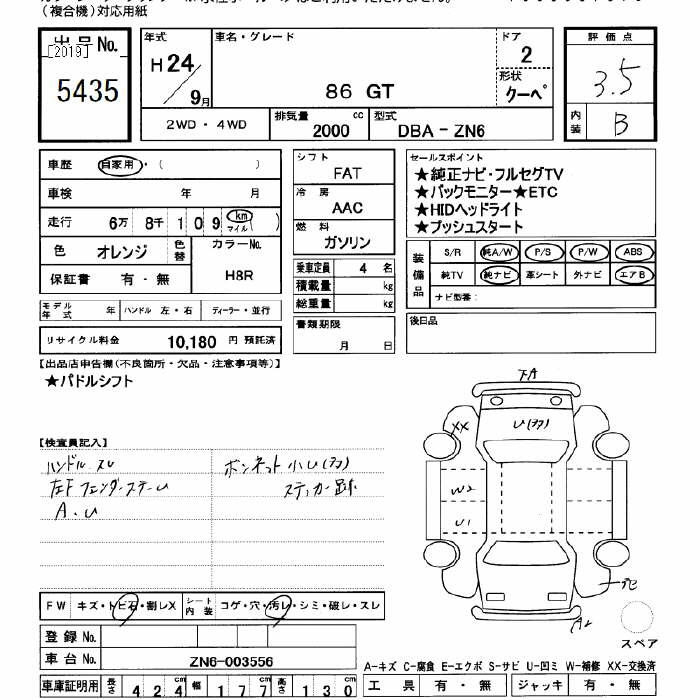 (複合機)対応用紙
出品No.
[2019]
5435
年式
H24/9月
車名・グレード
86 GT
ドア
2
形状
クーペ
評価点
3.5
内装
B
2WD・4WD
排気量
2000
cc
型式
DBA-ZN6
車歴
自家用・( )
車検
年 月
走行
6万 8千 1 0 9 km
マイル
色
オレンジ
色替
カラーNo.
H8R
保証書
有・無
モデル年式
年
ハンドル 左・右
ディーラー・並行
リサイクル料金
10,180 円 預託済
シフト
FAT
冷房
AAC
燃料
ガソリン
乗車定員
4 名
積載量
kg
総重量
kg
書類期限
月 日
セールスポイント
★純正ナビ・フルセグTV
★バックモニター★ETC
★HIDヘッドライト
★プッシュスタート
装備品
S/R 純A/W P/S P/W ABS
純TV 純ナビ 革シート 外ナビ エアB
ナビ型番:
後日品
【出品店申告欄(不良箇所・欠品・注意事項等)】
★パドルシフト
【検査員記入】
ハンドル スレ
左F フェンダーステーU
A.U
ボンネット 小U(多)
ステッカー跡
FA
XX
U(多)
W2
U1
A2
スペア
FW
キズ・トビ石・割レX
シート内装
コゲ・穴・汚レ・シミ・破レ・スレ
登録No.
車台No.
ZN6-003556
車庫証明用
長さ
4 2 4 cm
幅
1 7 7 cm
高さ
1 3 0 cm
A-キズ C-腐食 E-エクボ S-サビ U-凹ミ W-補修 XX-交換済
工具
有・無
ジャッキ
有・無